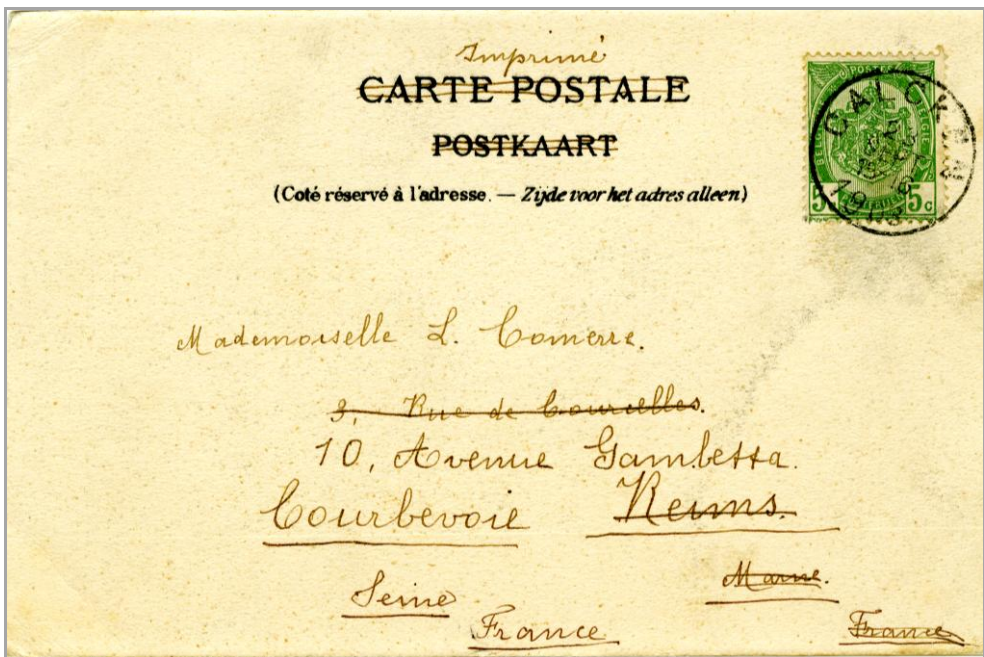 Imprimé
CARTE POSTALE
POSTKAART
(Coté réservé à l'adresse. — Zijde voor het adres alleen)
POSTES
5 5c
CALCKEN
1903
Mademoiselle L. Comerre.
3, Rue de Courcelles.
10, Avenue Gambetta.
Courbevoie Reims.
Seine Marne.
France France